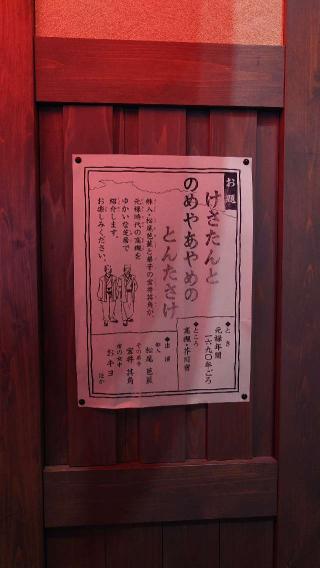 お題
けさたんと
のめやあやめの
とんたさけ
俳人・松尾芭蕉と弟子の宝井其角が、
元禄時代の高槻を
ゆかいな芝居で
紹介します。
お楽しみください。
◆とき
元禄年間
一六九〇年ごろ
◆ところ
高槻・芥川宿
◆出演
俳人
松尾 芭蕉
その弟子
宝井 其角
宿の女中
おキヨ
ほか